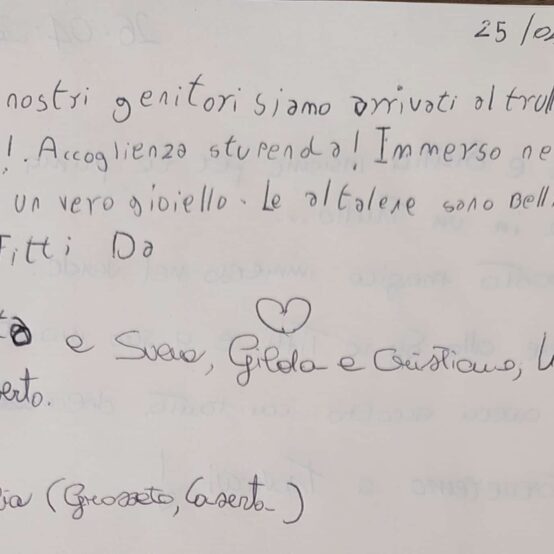 25/0
nostri genitori siamo arrivati al trull
!. Accoglienza stupenda! Immerso ne
un vero gioiello. Le altalene sono Bell
Fitti Da
e Sveva, Gilda e Cristiano,
erto.
(Grosseto, Caserta)